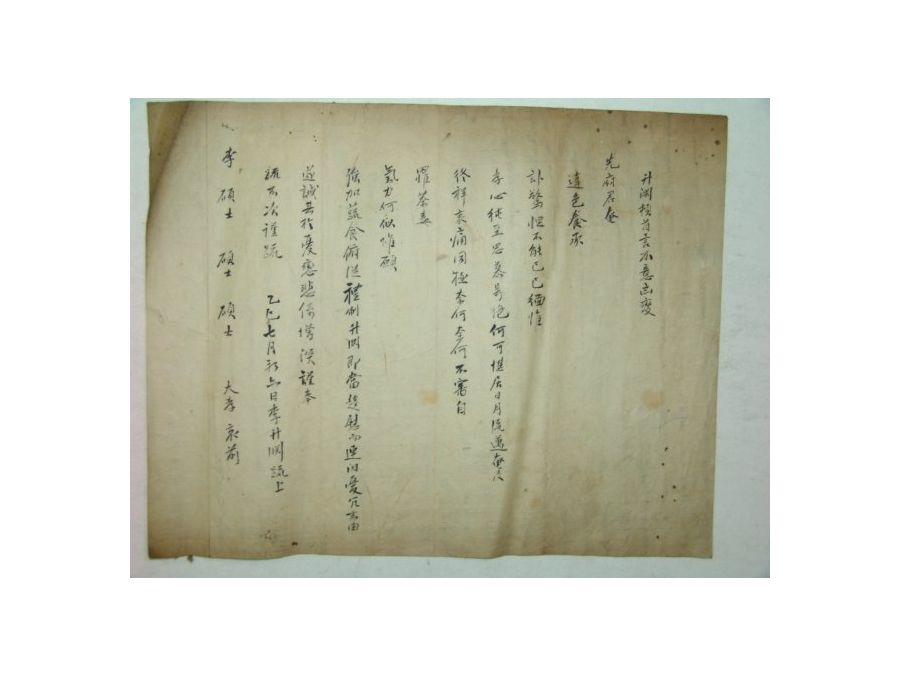 升淵頓首言不意凶變
先府君奄
違色養承
訃驚怛不能已已緬惟
孝心純至思慕號絶何可堪居日月流邁奄及
終祥哀痛罔極奈何奈何不審自
罹荼毒
氣力何似惟願
強加蔬食俯從禮制升淵即當趨慰而連以憂冗未由
遂誠其於憂戀悲係增深謹奉
疏不次謹疏 乙巳七月初六日李升淵疏上
李碩士 碩士 碩士 大孝哀前